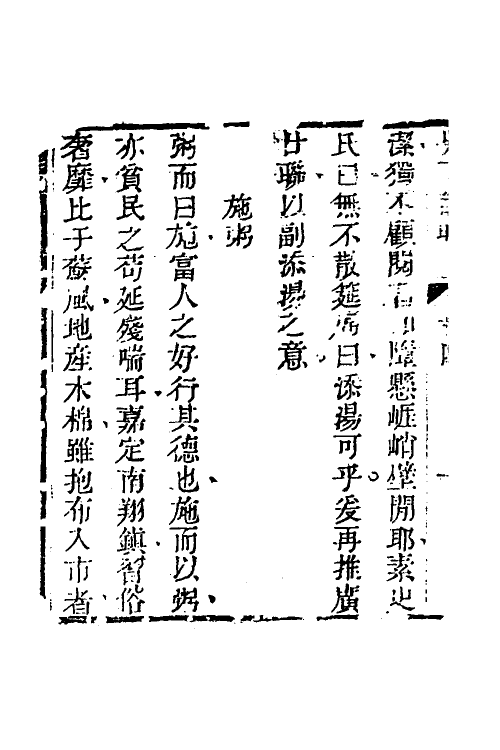 潔獨不顧閱者墮懸崕峭壁間耶素史
氏曰無不散筵席曰添湯可乎爰再推廣
廿聯以副添湯之意
施粥
粥而曰施富人之好行其德也施而以粥
亦貧民之苟延殘喘耳嘉定南翔鎮習俗
奢靡比于蘇風地產木棉雖抱布入市者